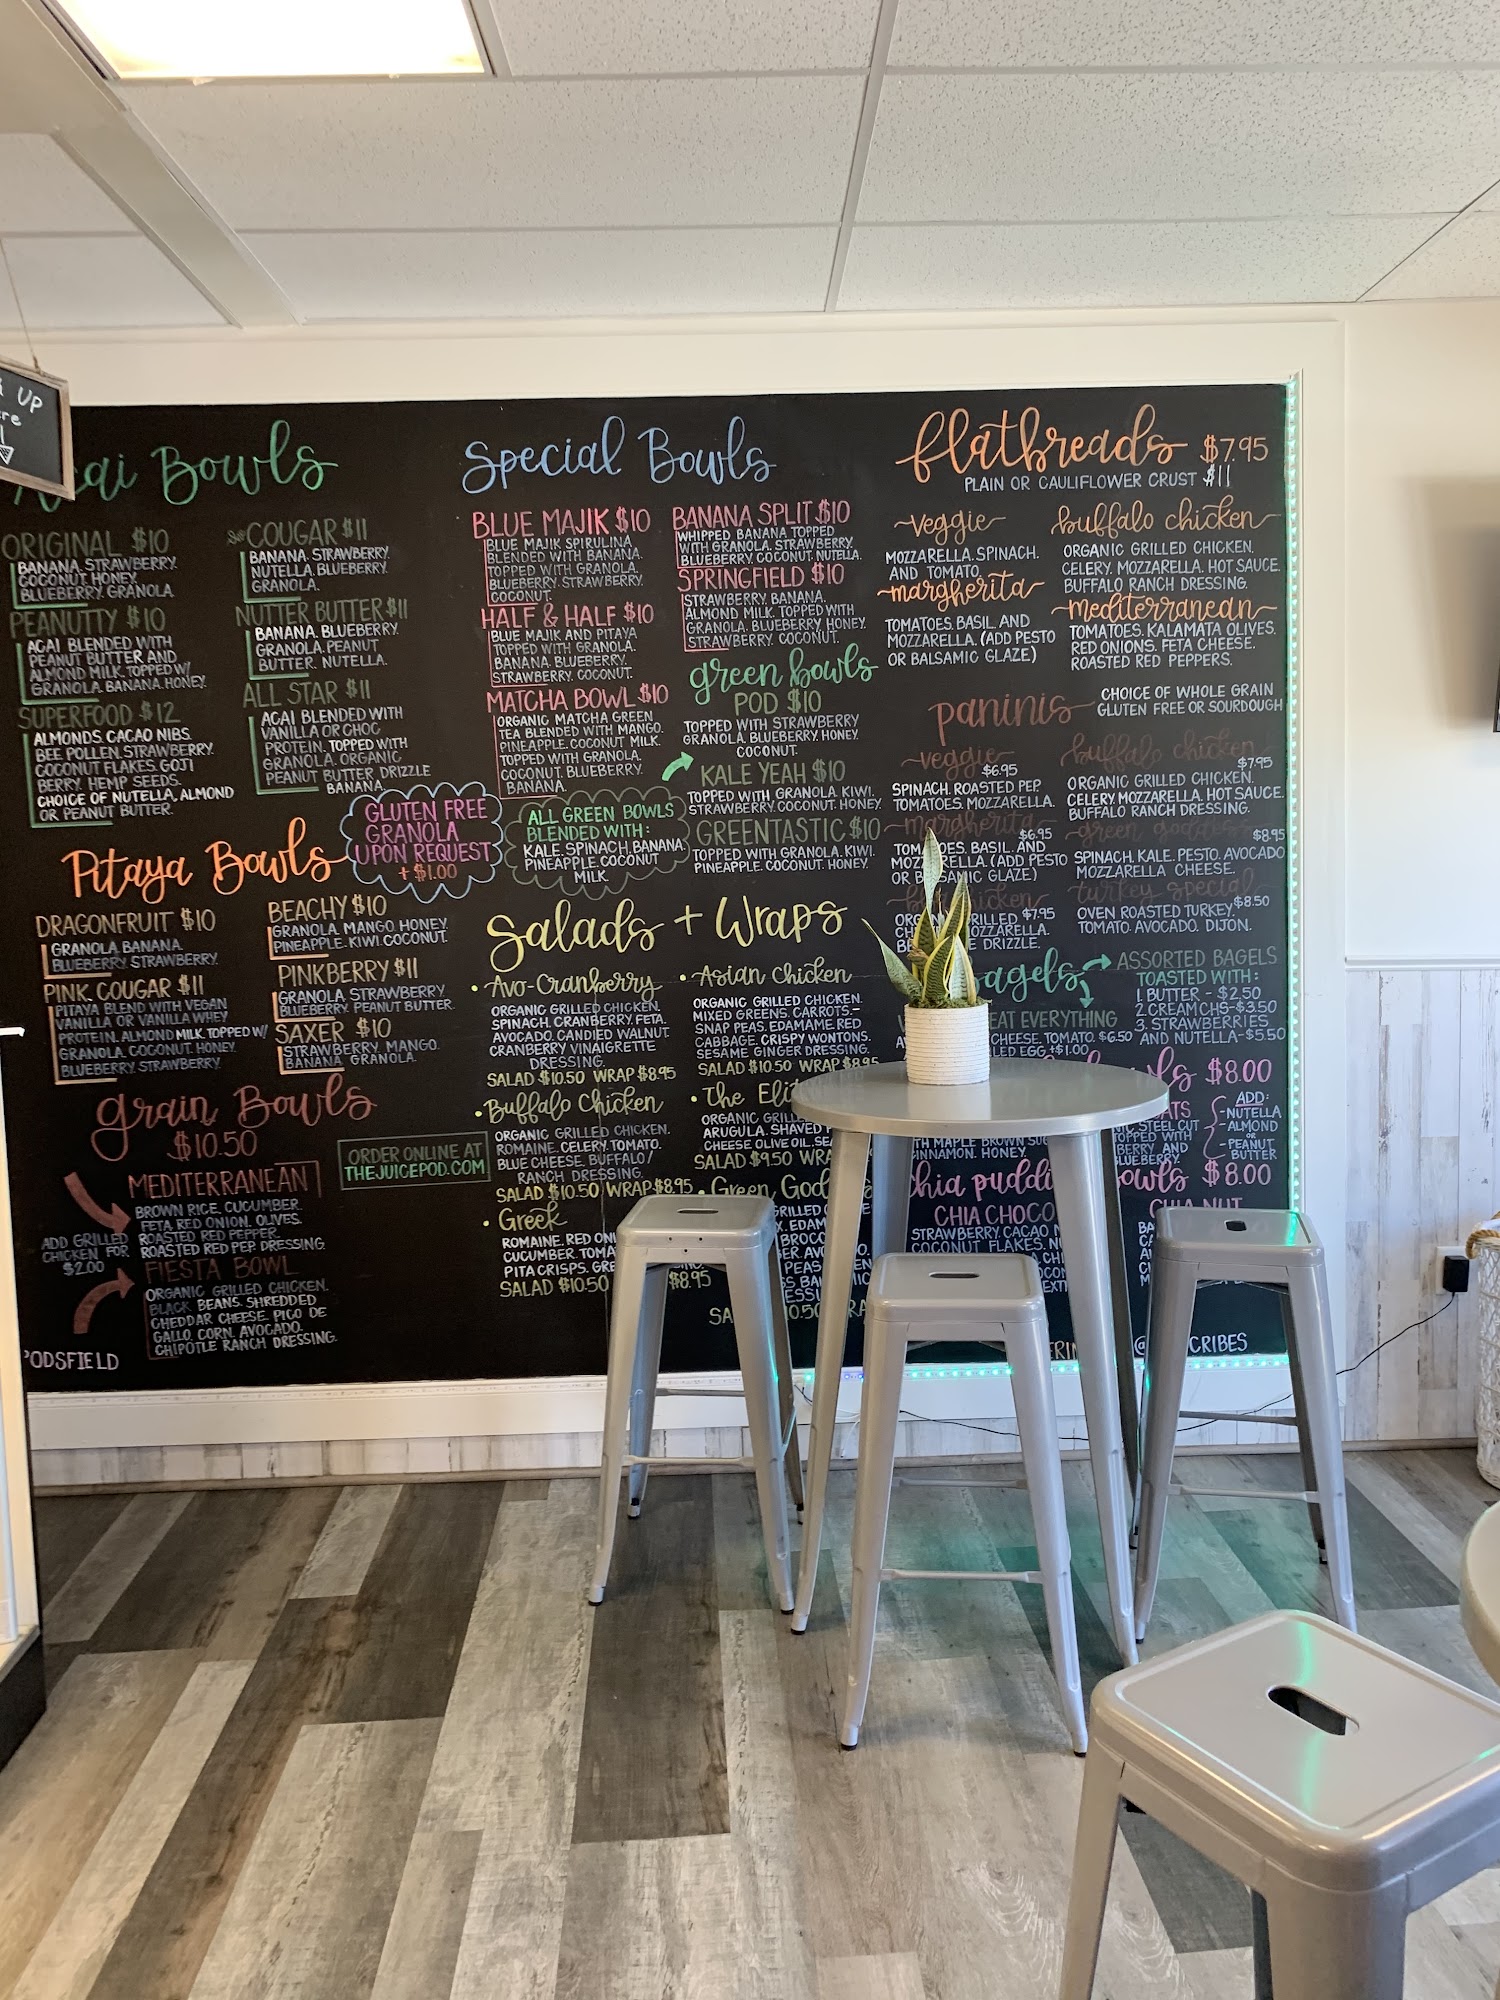 UP
Acai Bowls
ORIGINAL $10
BANANA. STRAWBERRY.
COCONUT. HONEY.
BLUEBERRY. GRANOLA.
PEANUTTY $10
ACAI BLENDED WITH
PEANUT BUTTER AND
ALMOND MILK. TOPPED W/
GRANOLA. BANANA. HONEY.
SUPERFOOD $12
ALMONDS. CACAO NIBS.
BEE POLLEN. STRAWBERRY.
COCONUT FLAKES. GOJI
BERRY. HEMP SEEDS.
CHOICE OF NUTELLA, ALMOND
OR PEANUT BUTTER.
COUGAR $11
BANANA. STRAWBERRY.
NUTELLA. BLUEBERRY.
GRANOLA.
NUTTER BUTTER $11
BANANA. BLUEBERRY.
GRANOLA. PEANUT
BUTTER. NUTELLA.
ALL STAR $11
ACAI BLENDED WITH
VANILLA OR CHOC
PROTEIN. TOPPED WITH
GRANOLA. ORGANIC
PEANUT BUTTER DRIZZLE
BANANA.
GLUTEN FREE
GRANOLA
UPON REQUEST
+ $1.00
Pitaya Bowls
DRAGONFRUIT $10
GRANOLA. BANANA.
BLUEBERRY. STRAWBERRY.
PINK COUGAR $11
PITAYA BLEND WITH VEGAN
VANILLA OR VANILLA WHEY
PROTEIN. ALMOND MILK. TOPPED W/
GRANOLA. COCONUT. HONEY.
BLUEBERRY. STRAWBERRY.
BEACHY $10
GRANOLA. MANGO. HONEY.
PINEAPPLE. KIWI. COCONUT.
PINKBERRY $11
GRANOLA. STRAWBERRY.
BLUEBERRY. PEANUT BUTTER.
SAXER $10
STRAWBERRY. MANGO.
BANANA. GRANOLA.
Grain Bowls
$10.50
MEDITERRANEAN
BROWN RICE. CUCUMBER.
FETA. RED ONION. OLIVES.
ROASTED RED PEPPER.
ROASTED RED PEP. DRESSING.
ADD GRILLED
CHICKEN FOR
$2.00
FIESTA BOWL
ORGANIC GRILLED CHICKEN.
BLACK BEANS. SHREDDED
CHEDDAR CHEESE. PICO DE
GALLO. CORN. AVOCADO.
CHIPOTLE RANCH DRESSING.
PODSFIELD
ORDER ONLINE AT
THEJUICEPOD.COM
Special Bowls
BLUE MAJIK $10
BLUE MAJIK SPIRULINA
BLENDED WITH BANANA.
TOPPED WITH GRANOLA.
BLUEBERRY. STRAWBERRY.
COCONUT.
HALF & HALF $10
BLUE MAJIK AND PITAYA
TOPPED WITH GRANOLA.
BANANA. BLUEBERRY.
STRAWBERRY. COCONUT.
MATCHA BOWL $10
ORGANIC MATCHA GREEN
TEA BLENDED WITH MANGO.
PINEAPPLE. COCONUT MILK.
TOPPED WITH GRANOLA.
COCONUT. BLUEBERRY.
BANANA.
BANANA SPLIT $10
WHIPPED BANANA TOPPED
WITH GRANOLA. STRAWBERRY.
BLUEBERRY. COCONUT. NUTELLA.
SPRINGFIELD $10
STRAWBERRY. BANANA.
ALMOND MILK. TOPPED WITH
GRANOLA. BLUEBERRY. HONEY.
STRAWBERRY. COCONUT.
green bowls
POD $10
TOPPED WITH STRAWBERRY
GRANOLA. BLUEBERRY. HONEY.
COCONUT.
KALE YEAH $10
TOPPED WITH GRANOLA. KIWI.
STRAWBERRY. COCONUT. HONEY.
GREENTASTIC $10
TOPPED WITH GRANOLA. KIWI.
PINEAPPLE. COCONUT. HONEY.
ALL GREEN BOWLS
BLENDED WITH:
KALE. SPINACH. BANANA.
PINEAPPLE. COCONUT
MILK.
Salads + Wraps
Avo-Cranberry
ORGANIC GRILLED CHICKEN.
SPINACH. CRANBERRY. FETA.
AVOCADO. CANDIED WALNUT.
CRANBERRY VINAIGRETTE
DRESSING.
SALAD $10.50 WRAP $8.95
Buffalo Chicken
ORGANIC GRILLED CHICKEN.
ROMAINE. CELERY. TOMATO.
BLUE CHEESE. BUFFALO/
RANCH DRESSING.
SALAD $10.50 WRAP $8.95
Greek
ROMAINE. RED ONI
CUCUMBER. TOMA
PITA CRISPS. GRE
SALAD $10.50 $8.95
Asian Chicken
ORGANIC GRILLED CHICKEN.
MIXED GREENS. CARROTS.-
SNAP PEAS. EDAMAME. RED
CABBAGE. CRISPY WONTONS.
SESAME GINGER DRESSING.
SALAD $10.50 WRAP $8.95
The Elit
ORGANIC GRILL
ARUGULA. SHAVED P
CHEESE. OLIVE OIL. SEA
SALAD $9.50 WRA
Green God
flatbreads $7.95
PLAIN OR CAULIFLOWER CRUST $11
veggie
MOZZARELLA. SPINACH.
AND TOMATO.
margherita
TOMATOES. BASIL. AND
MOZZARELLA. (ADD PESTO
OR BALSAMIC GLAZE)
buffalo chicken
ORGANIC GRILLED CHICKEN.
CELERY. MOZZARELLA. HOT SAUCE.
BUFFALO RANCH DRESSING.
mediterranean
TOMATOES. KALAMATA OLIVES.
RED ONIONS. FETA CHEESE.
ROASTED RED PEPPERS.
paninis
CHOICE OF WHOLE GRAIN
GLUTEN FREE OR SOURDOUGH
veggie
$6.95
SPINACH. ROASTED PEP.
TOMATOES. MOZZARELLA.
margherita
$6.95
TOMATOES. BASIL. AND
MOZZARELLA. (ADD PESTO
OR BALSAMIC GLAZE)
chicken
$7.95
ORG GRILLED
MOZZARELLA.
DRIZZLE.
buffalo chicken
$7.95
ORGANIC GRILLED CHICKEN.
CELERY. MOZZARELLA. HOT SAUCE.
BUFFALO RANCH DRESSING.
green goddess
$8.95
SPINACH. KALE. PESTO. AVOCADO
MOZZARELLA CHEESE.
turkey special
$8.50
OVEN ROASTED TURKEY.
TOMATO. AVOCADO. DIJON.
bagels
ASSORTED BAGELS
TOASTED WITH:
1. BUTTER - $2.50
2. CREAM CHS-$3.50
3. STRAWBERRIES
AND NUTELLA-$5.50
EAT EVERYTHING
CHEESE. TOMATO. $6.50
EGG +$1.00
$8.00
ADD:
-NUTELLA
-ALMOND
OR
-PEANUT
BUTTER
STEEL CUT
TOPPED WITH
BERRY AND
BLUEBERRY.
WITH MAPLE BROWN SUG
CINNAMON. HONEY.
chia pudding bowls $8.00
CHIA CHOCO
STRAWBERRY. CACAO N
COCONUT FLAKES. N
CHIA NUT
CRIBES